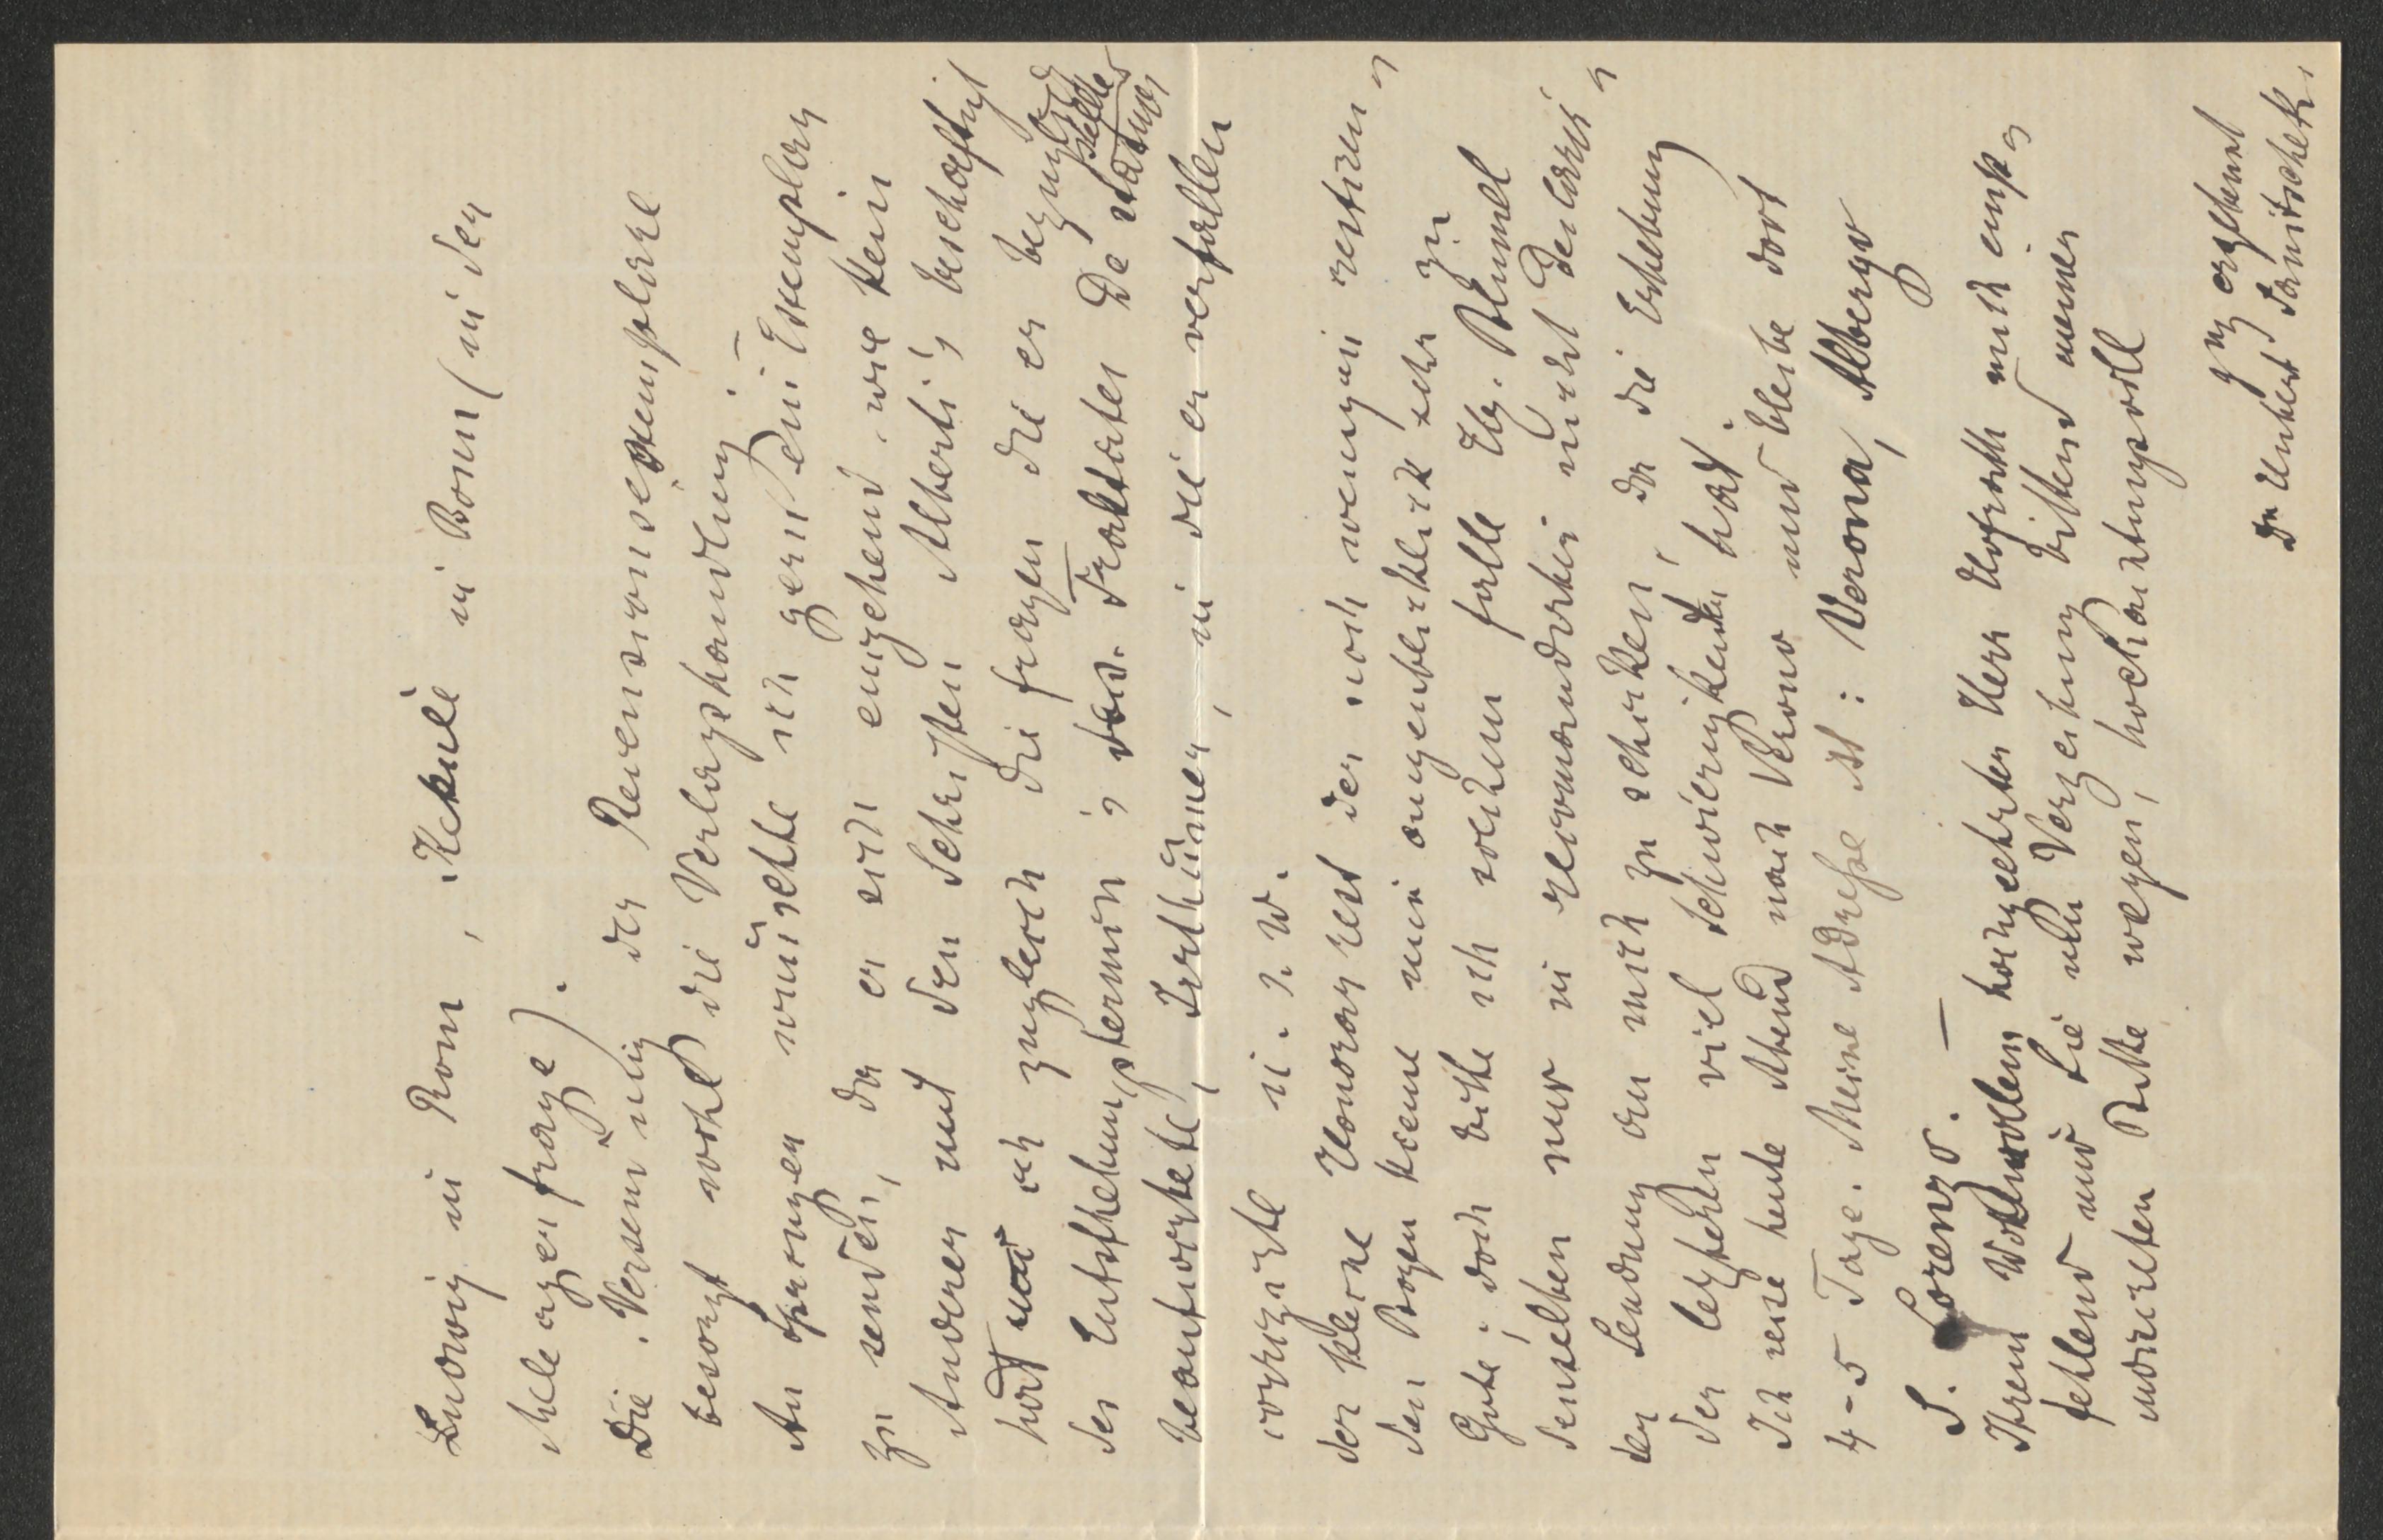 Ludwig in Rom, Kekulé in Bonn (in der
Meleagerfrage).
Die Versendung der Recensionsexemplare
besorgt wohl die Verlagshandlung; –
An Springer wünschte ich gern ein Exemplar
zu senden, da er sich eingehend, wie kein
Anderer mit den Schriften Alberti's beschäftigt
hat und ich zugleich die Fragen die er bezügl.
der Entstehungstermin's der Traktates De statua stellte
beantwortet, Irrthümer, in die er verfallen
corrigirte u. s. w.
Der kleine Honorarrest der noch wenigen restiren-
den Bogen käme mir augenblicklich sehr zu
Gute; doch bitte ich solchem Falle Ew.
denselben nur in recomandirten nicht deklarir-
ter Sendung an mich zu schicken, da die Erhebung
der letzteren viel Schwierigkeiten hat.
Ich reise heute Abend nach Verona und bleibe dort
4–5 Tage. Meine Adresse ist: Verona, Albergo
S. Lorenzo. –
Ihrem Wohlwollen hochgeehrter Herr Hofrath mich emp-
fehlend und Sie um Verzeihung bittend meiner
Bitte wegen, hochachtungsvoll
ganz ergebenst
Dr Hubert Janitschek.